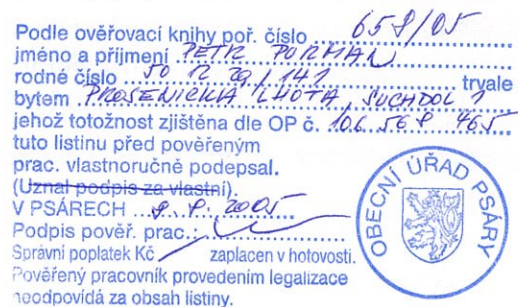 Podle ověřovací knihy poř. číslo 658/05
jméno a příjmení PETR PORMAN
rodné číslo 50 12 29/141 trvale
bytem PROSENICKÁ LHOTA, SUCHDOL 1
jehož totožnost zjištěna dle OP č. 106 568 465
tuto listinu před pověřeným
prac. vlastnoručně podepsal.
(Uznal podpis za vlastní).
V PSÁRECH 8. 8. 2005
Podpis pověř. prac.:
Správní poplatek Kč zaplacen v hotovosti.
Pověřený pracovník provedením legalizace
neodpovídá za obsah listiny.
OBECNÍ ÚŘAD PSÁRY